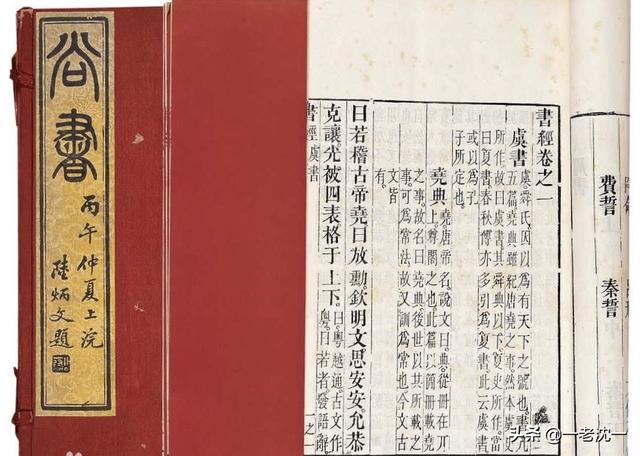 尚書
丙午仲夏上浣
陸炳文題
書經卷之一
虞書
虞舜氏因以為有天下之號也書凡
五篇堯典雖紀唐堯之事然本虞史
所作故曰虞書其舜典以下夏史所作當
曰夏書春秋傳亦多引為夏書此云虞書
或以為孔
子所定也
堯典
堯唐帝名說文曰典從冊在丌
上尊閣之也此篇以簡冊載堯
之事故名曰堯典後世以其所載之
事可為常法故又訓為常也今文古
文皆
有
曰若稽古帝堯曰放勳欽明文思安安允恭
克讓光被四表格于上下
曰粵越通古文作
粵曰若者發語辭
書經虞書
之一
費誓
秦誓
头条 @一老沈一